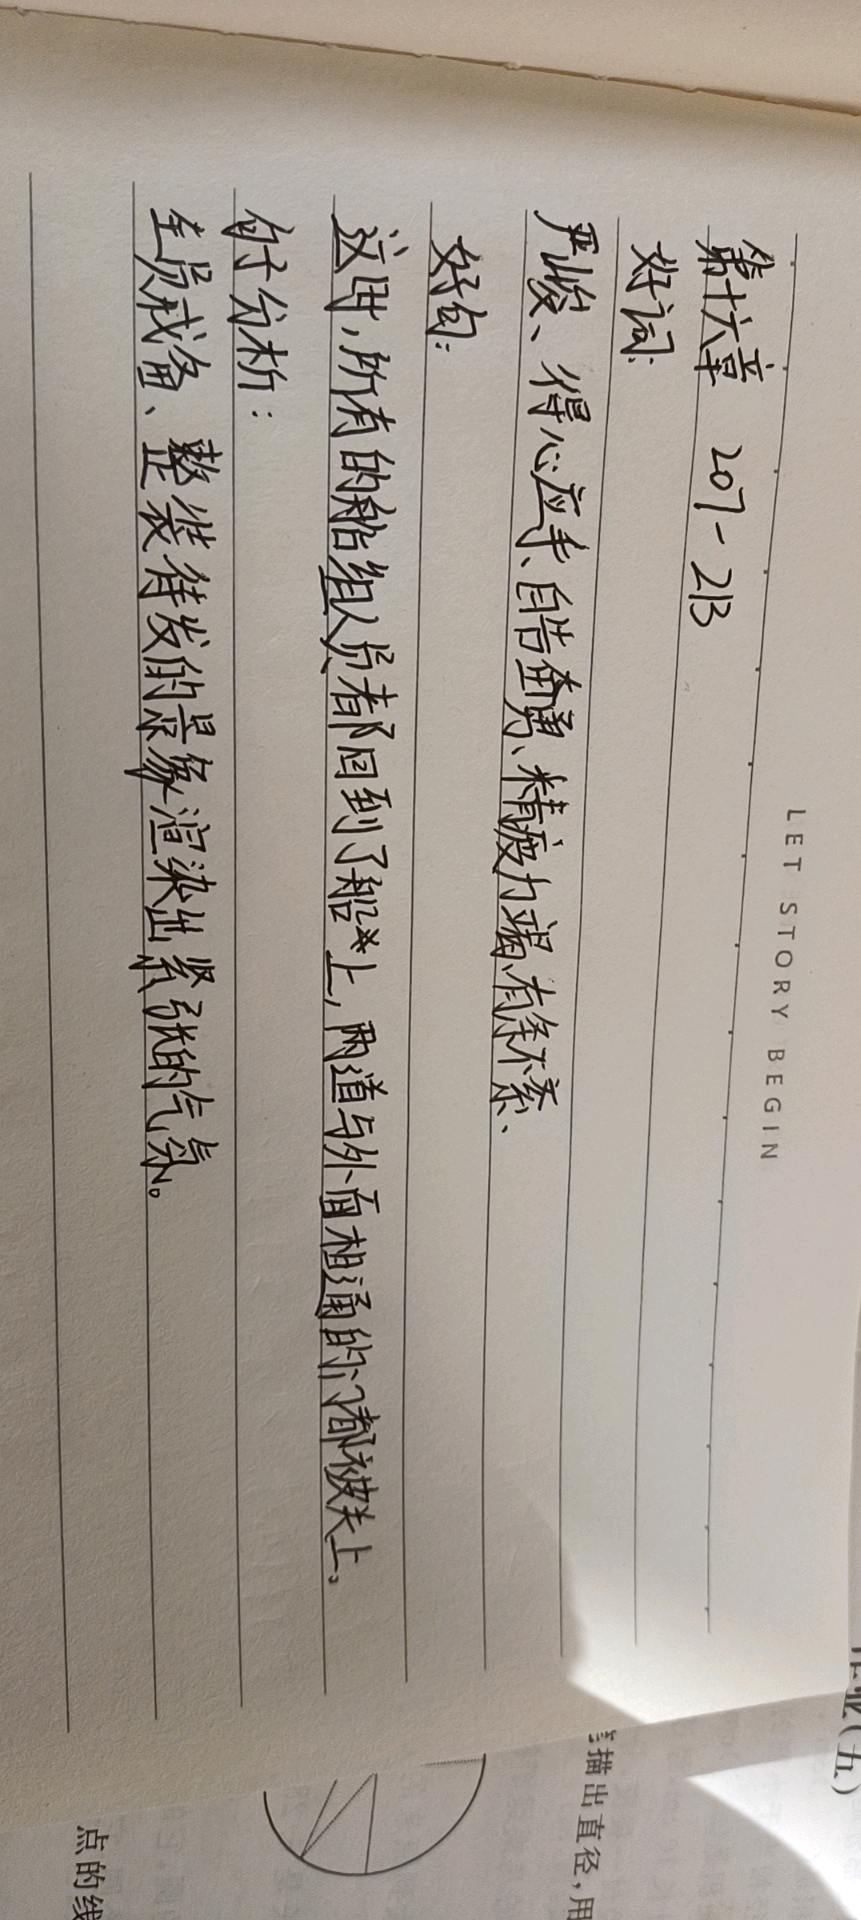 LET STORY BEGIN
第十六章 207-213
好词:
严峻、得心应手、自告奋勇、精疲力竭、有条不紊、
好句:
这时,所有的船组人员都回到了船上,两道与外面相通的门都被关上。
句子分析:
全员戒备、整装待发的景象渲染出紧张的气氛。
作业(五)
描出直径,用
点的线